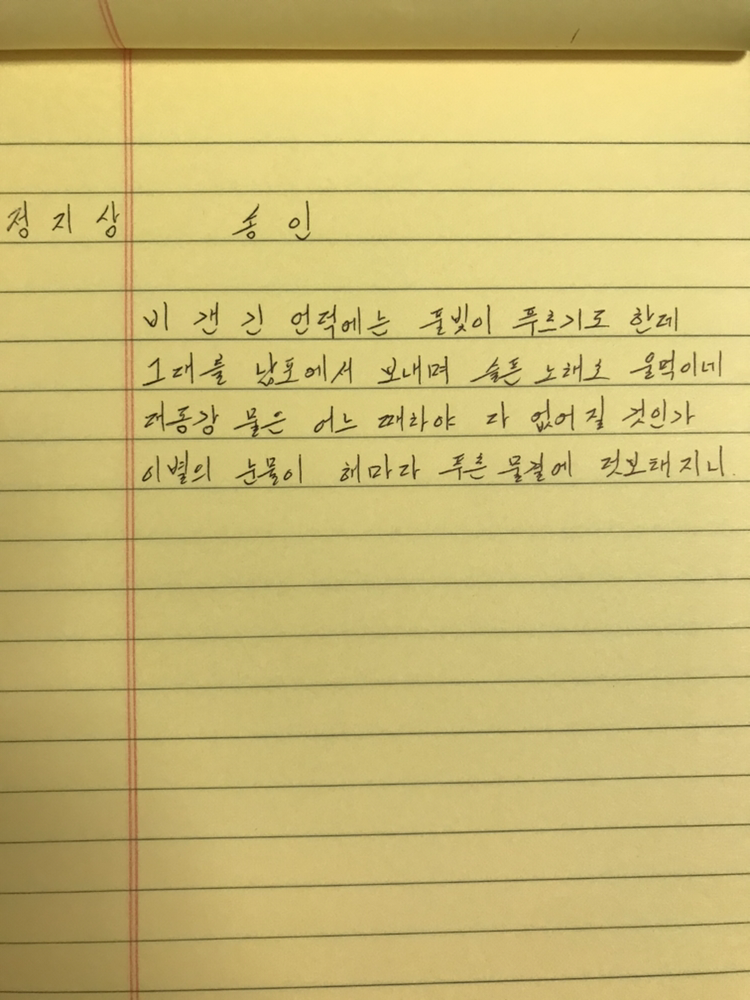 정지상 송인
비 갠 긴 언덕에는 풀빛이 푸르기로 한데
그대를 남포에서 보내며 슬픈 노래로 울먹이네
대동강 물은 어느 때라야 다 없어질 것인가
이별의 눈물이 해마다 푸른 물결에 덧보태지니.